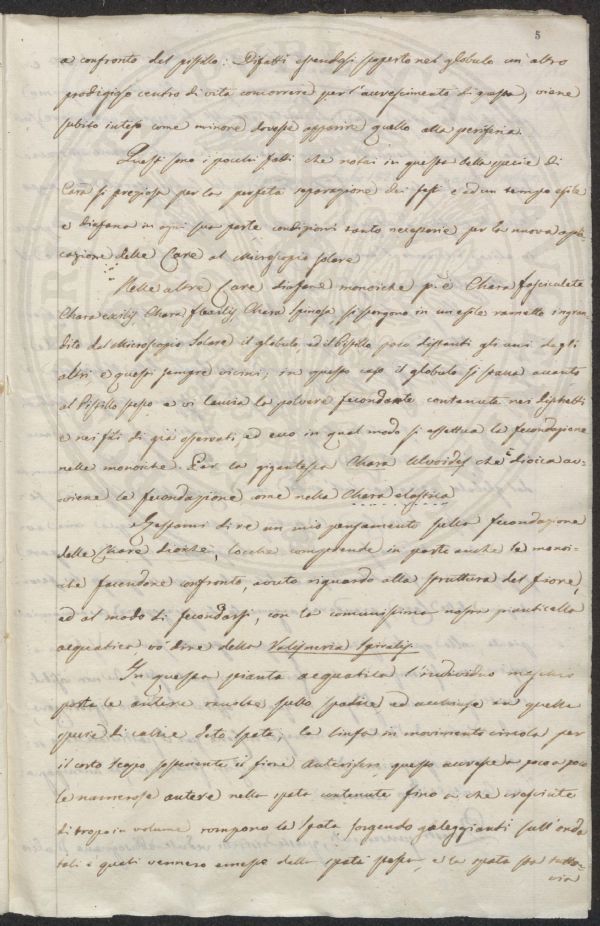 5
a confronto del pistillo: Difatti essendosi scoperto nel globulo un altro
prodigioso centro di vita concorrere per l'accrescimento di questo, viene
subito inteso come minore dovesse apparire quello alla periferia.
Questi sono i pochi fatti che notai in questa bella specie di
Cara si preziosa per la perfetta separazione dei sessi e ad un tempo esile
e diafana in ogni sua parte condizioni tanto necessarie per la nuova appli-
cazione delle Care al Microscopio solare
Nelle altre Care diafane monoiche p. e. Chara fasciculata
Chara exilis, Chara flexilis, Chara spinosa, si scorgono in un esile rametto ingran-
dito dal Microscopio Solare il globulo, ed il Pistillo poco distanti gli uni dagli
altri, e questi sempre vicini; in questo caso il globulo si piana avanti
al Pistillo stesso e vi lancia la polvere fecondante contenuta nei
e nei fili di già osservati, ed ecco in qual modo si effettua la fecondazione
nelle monoiche. Per la gigantesca Chara Ulvoides che è dioica av-
viene la fecondazione come nella Chara elastica
dire un mio pensamento sulla fecondazione
delle Chare dioiche, locchè comprende in parte anche le monoi-
che facendone confronto, avuto riguardo alla struttura del fiore,
ed al modo di fecondarsi, con la comunissima nostra pianticella
acquatica vò dire della Valisneria Spiralis.
In questa pianta acquatica l'individuo maschio
porta le antere sullo spadice ed in quella
specie di calice detto spata; la linfa in movimento circola per
il corto scapo il fiore Anterifero, questa accresce a poco a poco
le numerose antere nella spata contenute fino a che cresciute
di troppo in volume rompono la spata, sorgendo galeggianti sull'onda
tali e quali vennero emesse dalla spata stessa, e la spata sta tutta-
via